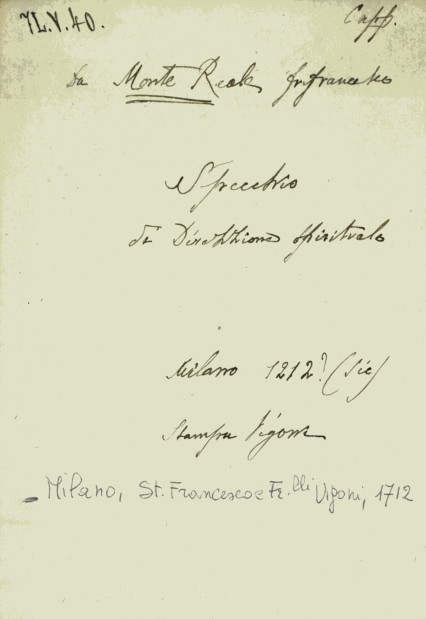 7L.V.40. Capp.
Da Monte Reale frfrancesco
Specchio
di Direzzione spirituale
Milano 1212? (Sic)
Stampa Vigoni
Milano, St. Francesco e Fr.lli Vigoni, 1712